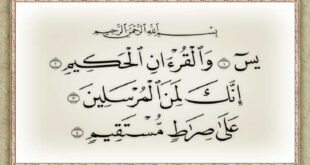 بِسْمِ ٱللَّهِ ٱلرَّحْمَٰنِ ٱلرَّحِيمِ
يسٓ ١ وَٱلْقُرْءَانِ ٱلْحَكِيمِ ٢
إِنَّكَ لَمِنَ ٱلْمُرْسَلِينَ ٣
عَلَىٰ صِرَٰطٍ مُّسْتَقِيمٍ ٤